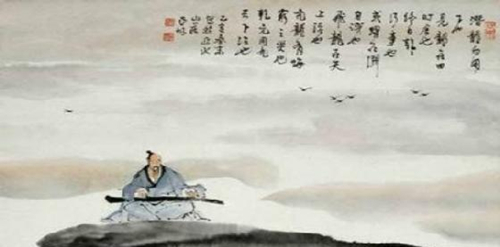 潛龍勿用
下也
見龍在田
時舍也
終日乾乾
行事也
或躍在淵
自試也
飛龍在天
上治也
亢龍有悔
窮之災也
乾元用九
天下治也